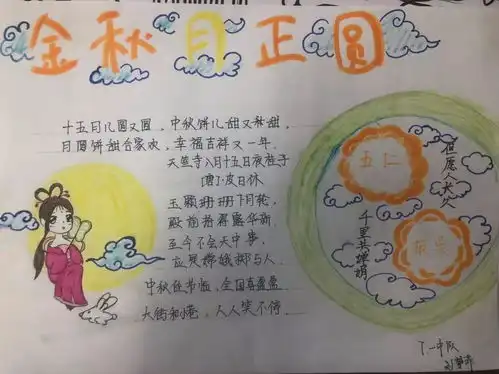 金秋月正圆
十五月儿圆又圆，中秋饼儿甜又甜，
月圆饼甜合家欢，幸福吉祥又一年．
天竺寺八月十五日夜桂子
[唐]·皮日休
玉颗珊珊下月轮，
殿前拾得露华新
至今不会天中事，
应是嫦娥掷与人．
中秋佳节临，全国喜盈盈
大街和小巷，人人笑不停
五仁
但愿人长久
千里共婵娟
7.一中队